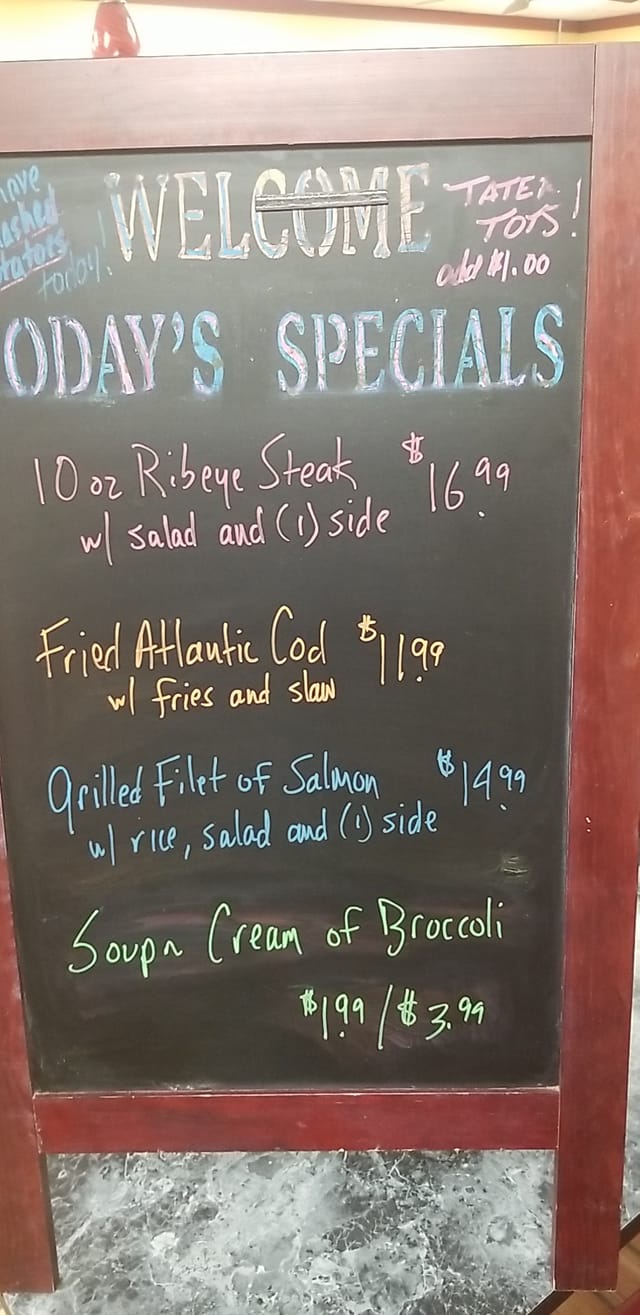 WELCOME
today!
TATER
TOTS!
add $1.00
ODAY'S SPECIALS
10 oz Ribeye Steak $16.99
w/ salad and (1) side
Fried Atlantic Cod $11.99
w/ fries and slaw
Grilled Filet of Salmon $14.99
w/ rice, salad and (1) side
Soup~ Cream of Broccoli
$1.99 / $3.99